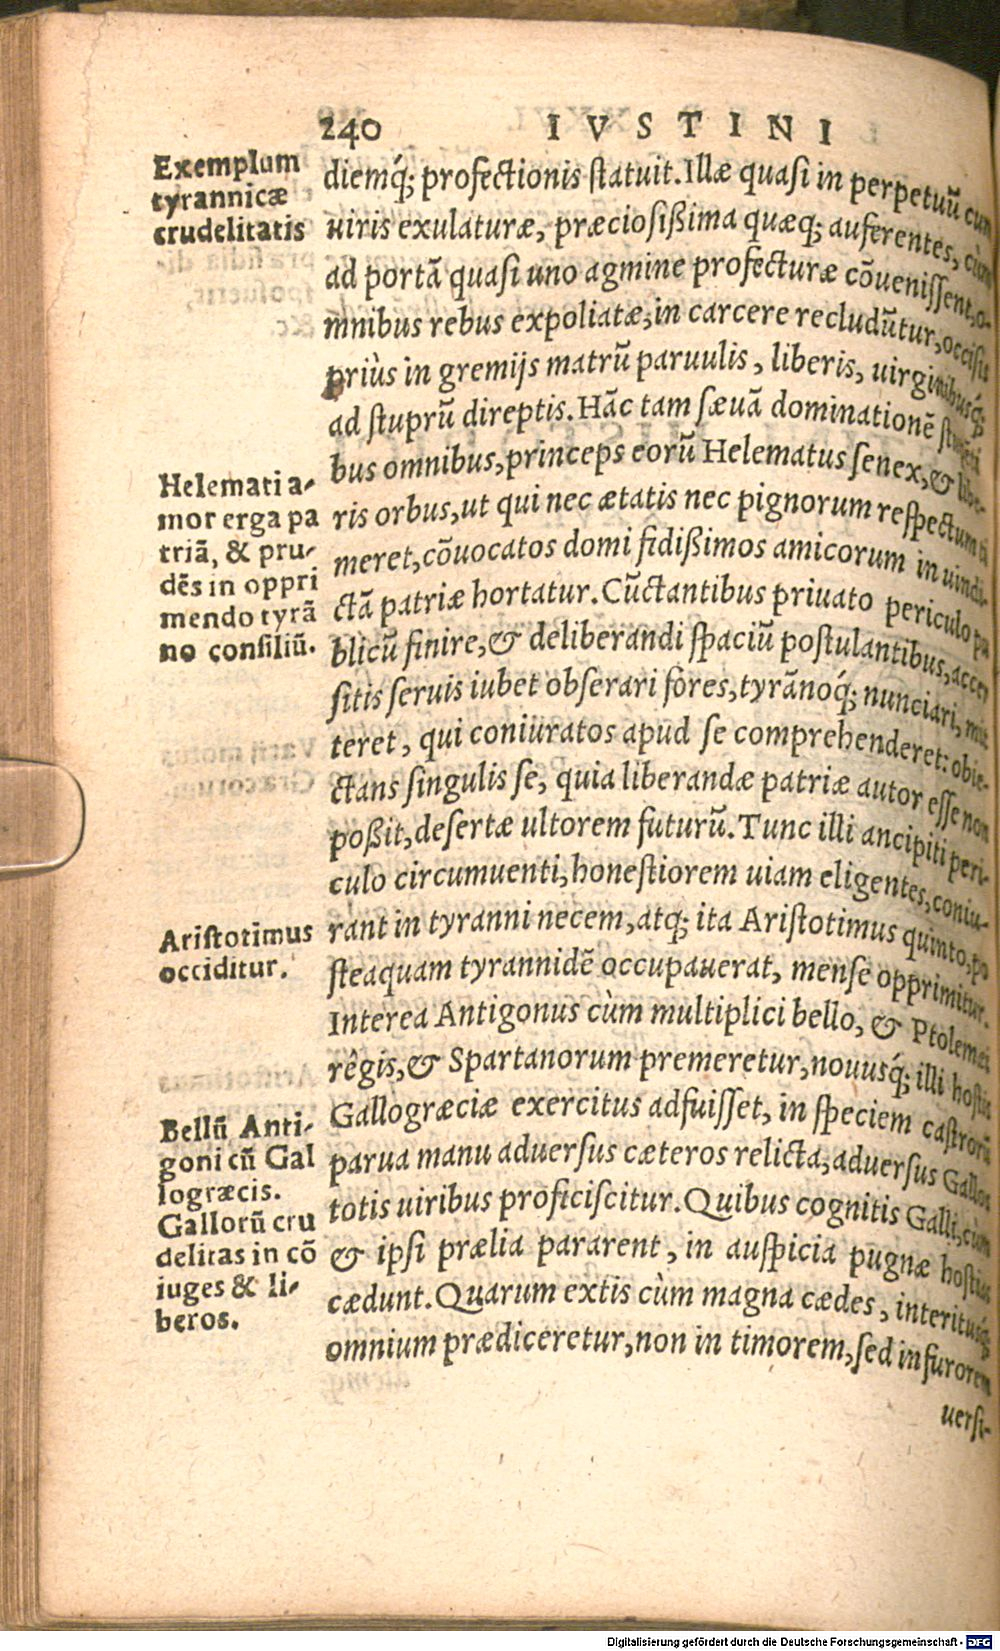 240 IVSTINI
Exemplum
tyrannicæ
crudelitatis
diemq́; profectionis ſtatuit. Illæ quaſi in perpetuũ cum
uiris exulaturæ, præcioſißima quæq; auferentes, cùm
ad portã quaſi uno agmine profecturæ cõueniſſent, o-
mnibus rebus expoliatæ, in carcere recludũtur, occiſis
priùs in gremijs matrũ paruulis, liberis, uirginibusq́;
ad ſtuprũ direptis. Hãc tam ſæuã dominationẽ
bus omnibus, princeps eorũ Helematus ſenex, & libe-
ris orbus, ut qui nec ætatis nec pignorum reſpectum ti
meret, cõuocatos domi fidißimos amicorum in uindi-
ctã patriæ hortatur. Cũctantibus priuato periculo pu
blicũ finire, & deliberandi ſpaciũ poſtulantibus, accer
ſitis ſeruis iubet obſerari fores, tyrãnoq́; nunciari, mit
teret, qui coniuratos apud ſe comprehenderet: obie-
ctans ſingulis ſe, quia liberandæ patriæ autor eſſe non
poßit, deſertæ ultorem futurũ. Tunc illi ancipiti peri-
culo circumuenti, honeſtiorem uiam eligentes, coniu-
rant in tyranni necem, atq; ita Ariſtotimus quinto, po
ſteaquam tyrannidẽ occupauerat, menſe opprimitur.
Interea Antigonus cùm multiplici bello, & Ptolemæi
rêgis, & Spartanorum premeretur, nouusq́; illi hoſtis
Gallogræciæ exercitus adfuiſſet, in ſpeciem caſtrorũ
parua manu aduerſus cæteros relicta, aduerſus Gallos
totis uiribus proficiſcitur. Quibus cognitis Galli, cùm
& ipſi prælia pararent, in auſpicia pugnæ hoſtias
cædunt. Quarum extis cùm magna cædes, interitusq́;
omnium prædiceretur, non in timorem, ſed in furorem
uerſi-
Helemati a-
mor erga pa
triã, & pru-
dẽs in oppri
mendo tyrã
no conſiliũ.
Ariſtotimus
occiditur.
Bellũ Anti-
goni cũ Gal
logræcis.
Gallorũ cru
delitas in cõ
iuges & li-
beros.
Digitalisierung gefördert durch die Deutsche Forschungsgemeinschaft - DFG